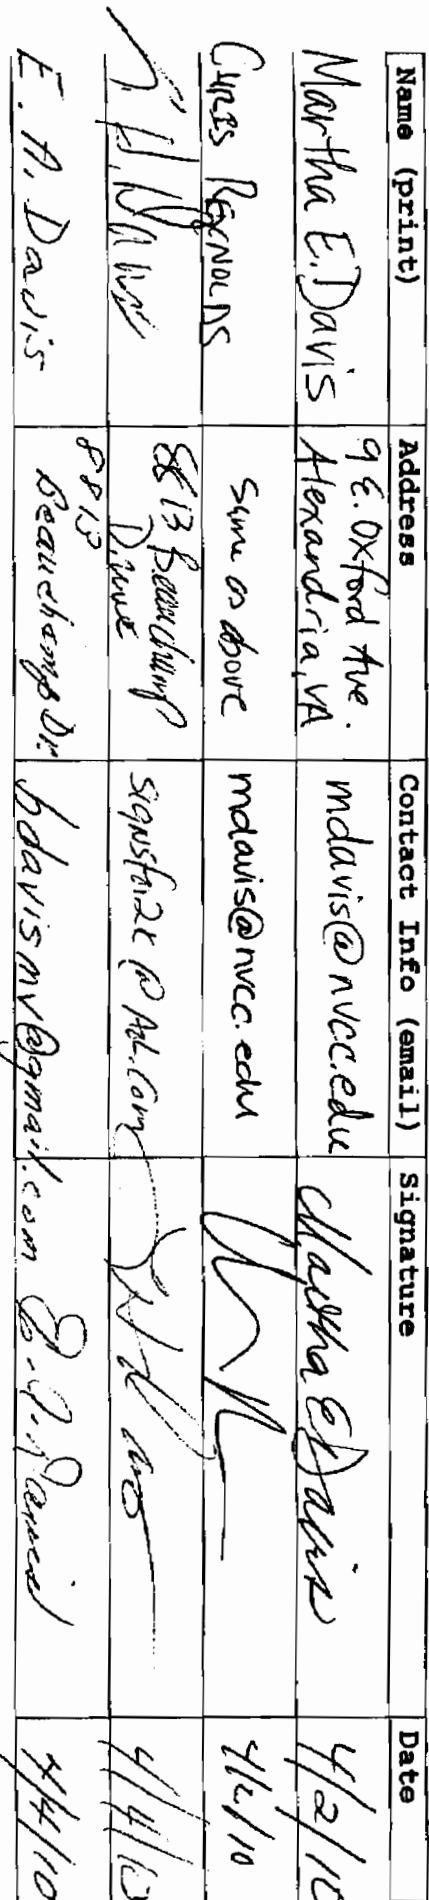 Name (print) Address Contact Info (email) Signature Date
Martha E. Davis 9 E. Oxford Ave. Alexandria, VA mdavis@nvcc.edu Martha E Davis 4/2/10
Chris Reynolds Same as above mdavis@nvcc.edu 4/2/10
8813 Beauchamp Drive @ AOL.com 4/4/10
E. A. Davis 8813 Beauchamp Dr. bdavismv@gmail.com E. A. Davis 4/4/10